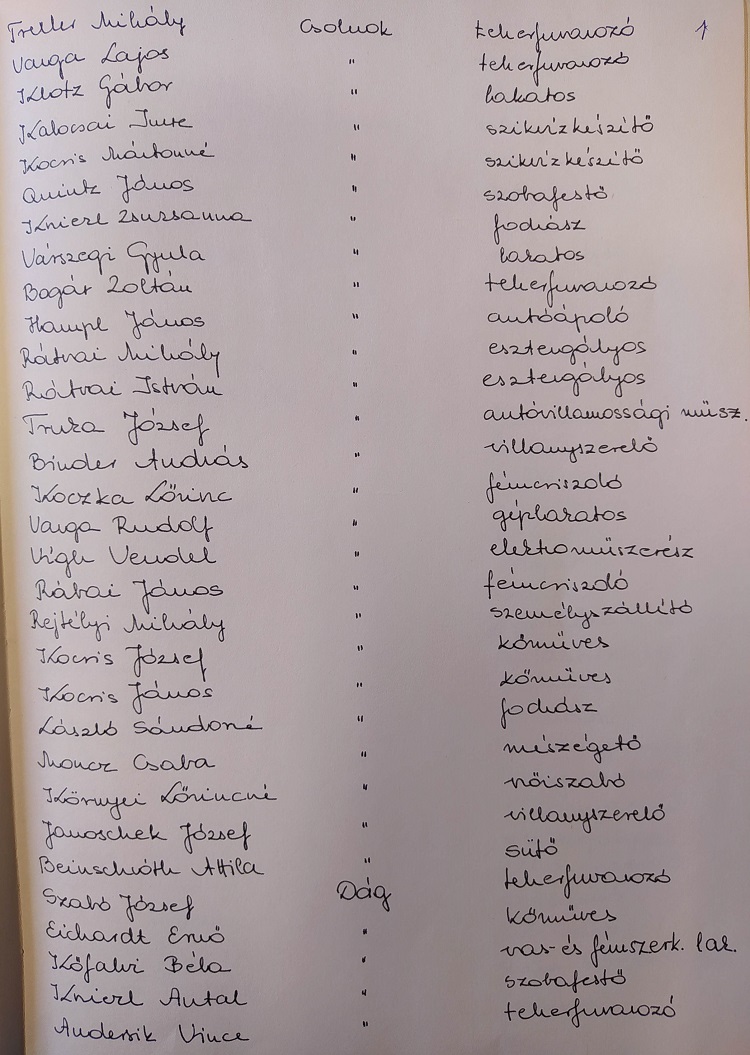 Treller Mihály Csolnok teherfuvarozó 1
Varga Lajos " teherfuvarozó
Klotz Gábor " lakatos
Kalocsai Imre " szikvízkészítő
Kocsis Mártonné " szikvízkészítő
Quintz János " szobafestő
Knierl Zsuzsanna " fodrász
Várszegi Gyula " lakatos
Bogár Zoltán " teherfuvarozó
Hampl János " autóápoló
Rátvai Mihály " esztergályos
Rátvai István " esztergályos
Truza József " autóvillamossági műsz.
Binder András " villanyszerelő
Koczka Lőrinc " fémcsiszoló
Varga Rudolf " géplakatos
Vígh Vendel " elektroműszerész
Rábai János " fémcsiszoló
Rejtélyi Mihály " személyszállító
Kocsis József " kőműves
Kocsis János " kőműves
László Sándorné " fodrász
Moncz Csaba " mészégető
Környei Lőrincné " nőiszabó
Janoschek József " villanyszerelő
Beinschróth Attila " sütő
Szabó József Dág teherfuvarozó
Eichardt Ernő " kőműves
Kőfalvi Béla " vas-és fémszerk. lak.
Knierl Antal " szobafestő
Andersik Vince " teherfuvarozó